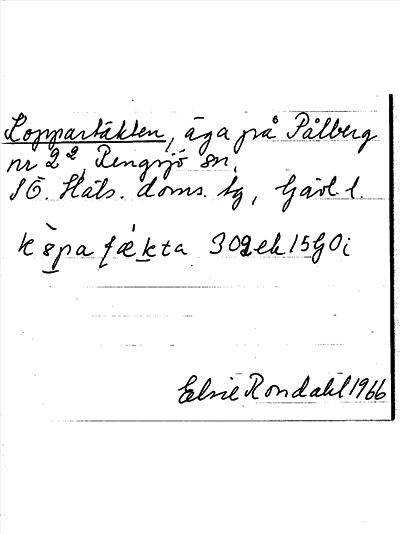 Koppartäkten, äga på Pålberg
nr 2², Rengsjö sn,
SÖ. Häls. doms. tg, Gävl. l.
ks̀pafǽkta 302ek15G0i
Elsie Rondahl 1966